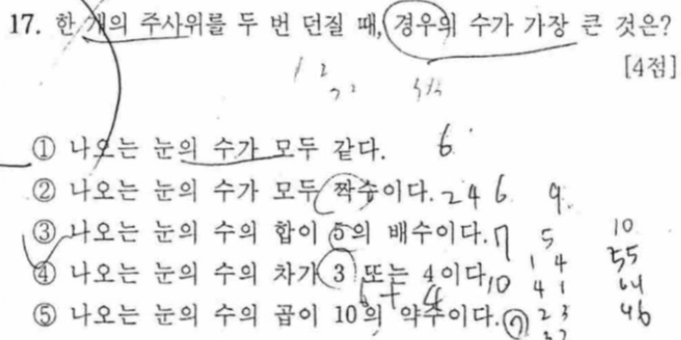 17. 한 개의 주사위를 두 번 던질 때, 경우의 수가 가장 큰 것은?
[4점]
1 2
① 나오는 눈의 수가 모두 같다. 6
② 나오는 눈의 수가 모두 짝수이다. 2 4 6 9
③ 나오는 눈의 수의 합이 5의 배수이다. 7 5 10
1 4 55
④ 나오는 눈의 수의 차가 3 또는 4이다. 10 4 1 64
6+4
⑤ 나오는 눈의 수의 곱이 10의 약수이다. 7 2 3 46
3 2